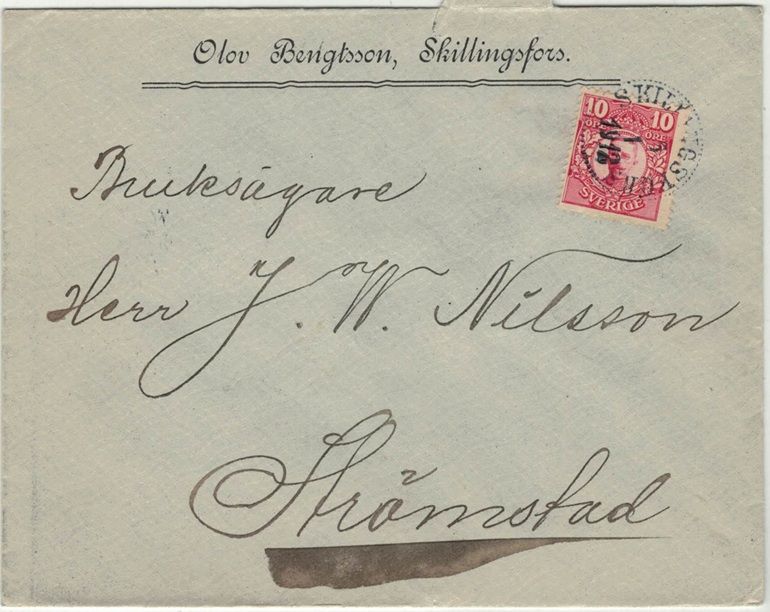 Olov Bengtsson, Skillingsfors.
10 10
ÖRE ÖRE
SVERIGE
1
1912
Bruksägare
Herr J. W. Nilsson
Strömstad